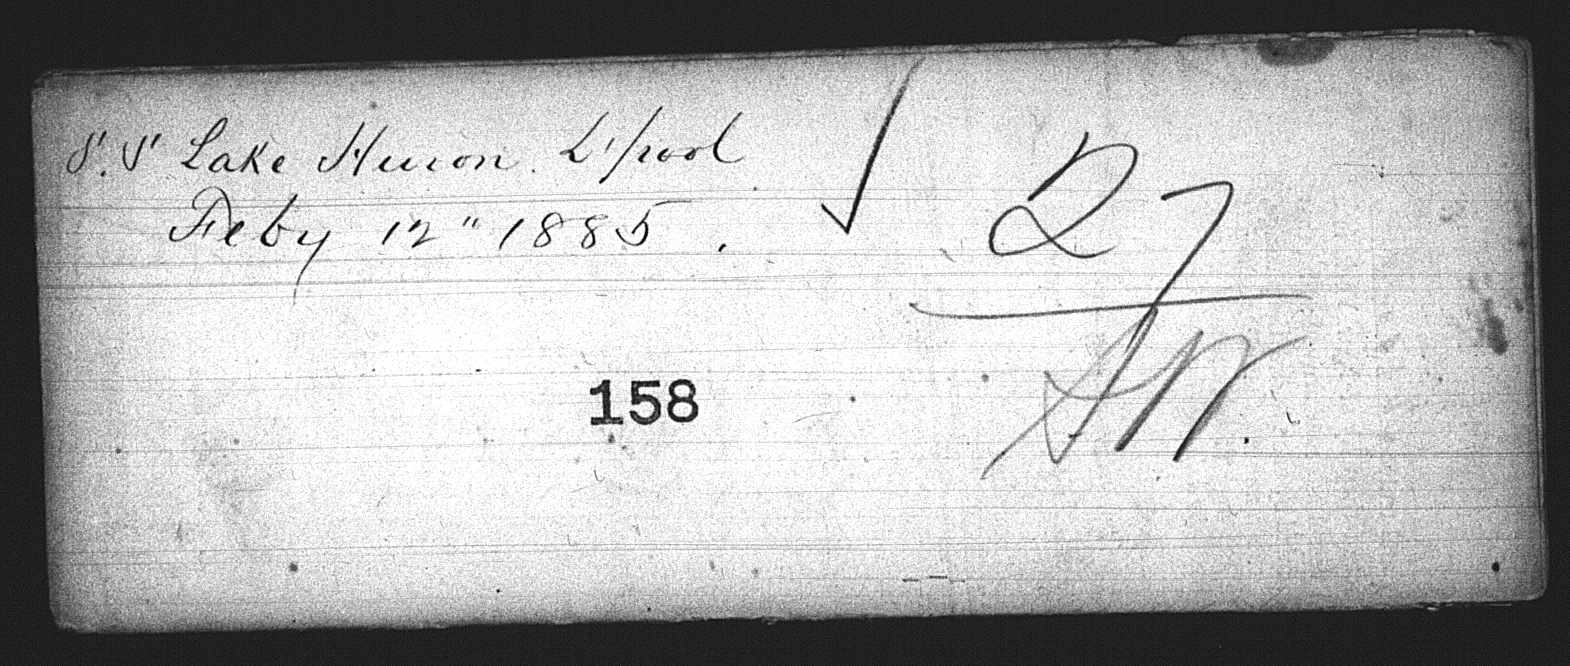 S.S Lake Huron. L'pool
Feby 12" 1885.
27
158